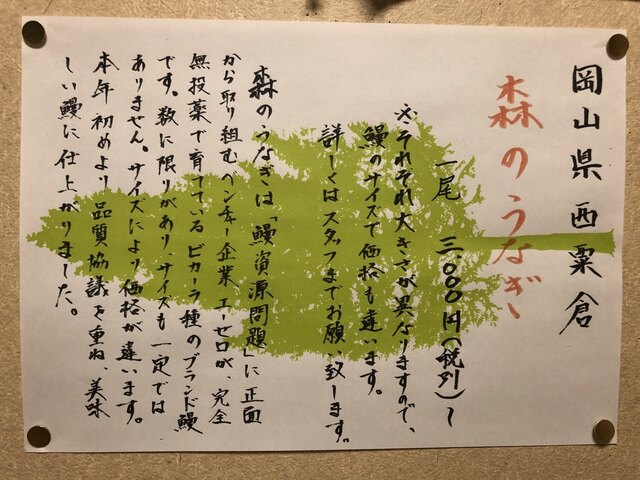 岡山県西粟倉
森のうなぎ
一尾 三,000円(税別)~
※それぞれ大きさが異なりますので、
鰻のサイズで価格も違います。
詳しくはスタッフまでお願い致します。
森のうなぎは「鰻資源問題」に正面
から取り組むベンチャー企業エーゼロが、完全
無投薬で育てているビカーラ種のブランド鰻
です。数に限りがあり、サイズも一定では
ありません。サイズにより価格が違います。
本年初めより品質協議を重ね、美味
しい鰻に仕上がりました。